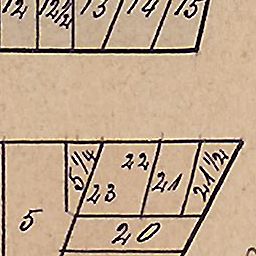 12 12½ 13 14 15
5¼ 22 21 21½
23
5 20